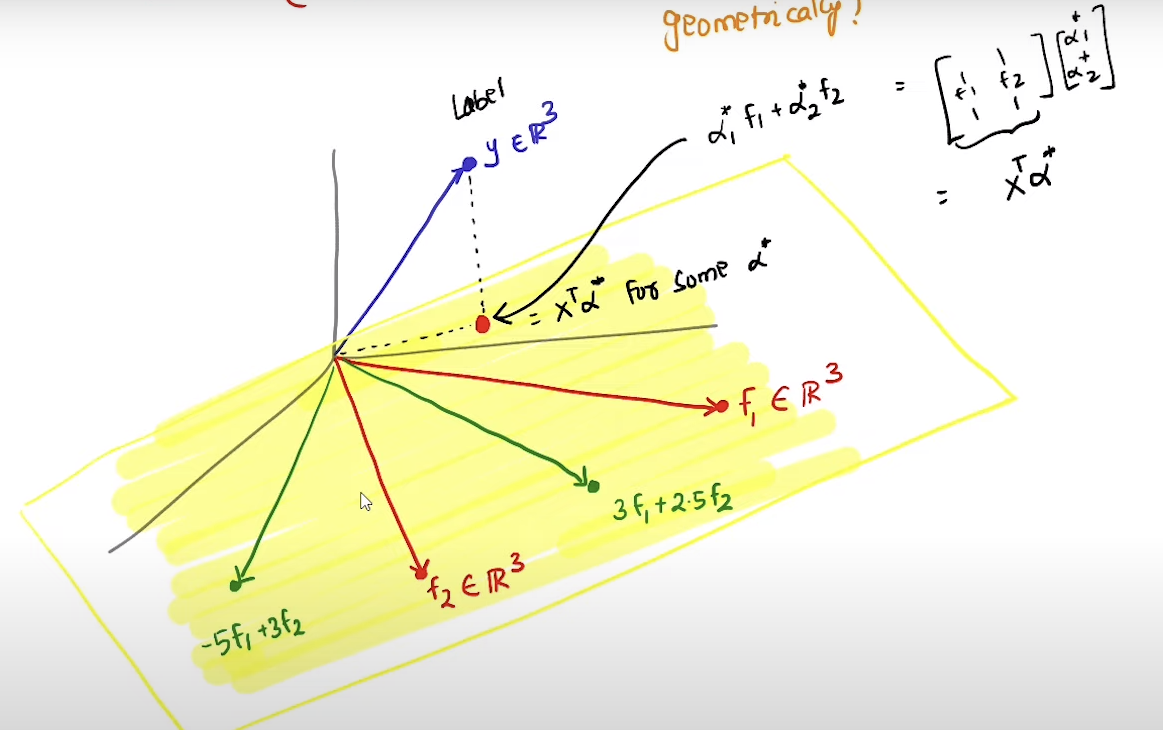 geometrically?
Label
y ∈ ℝ³
α₁* f₁ + α₂* f₂
= [f₁ f₂] [α₁* α₂*]
= Xᵀα*
= Xᵀα* for some α*
f₁ ∈ ℝ³
3f₁ + 2.5f₂
f₂ ∈ ℝ³
-5f₁ + 3f₂